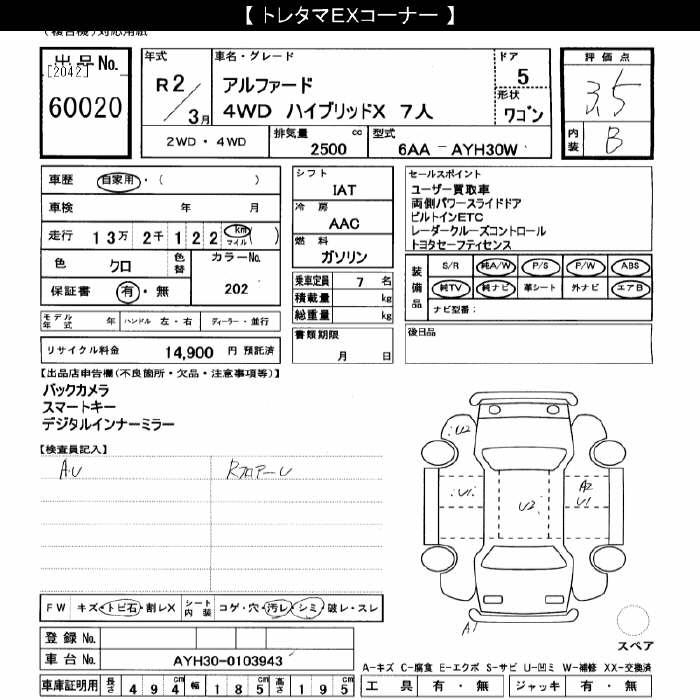 【 トレタマEXコーナー 】
(複合機)対応用紙
出品No.
[2042]
60020
年式
R2/3月
車名・グレード
アルファード
4WD ハイブリッドX 7人
ドア
5
形状
ワゴン
評価点
3.5
内装
B
2WD・4WD
排気量 cc
2500
型式
6AA - AYH30W
車歴 自家用・( )
車検 年 月
走行 13万 2千122 km マイル ( )
色 クロ 色替
カラーNo.
202
保証書 有・無
シフト
IAT
冷房
AAC
燃料
ガソリン
乗車定員 7 名
積載量 kg
総重量 kg
セールスポイント
ユーザー買取車
両側パワースライドドア
ビルトインETC
レーダークルーズコントロール
トヨタセーフティセンス
装備品
S/R 純A/W P/S P/W ABS
純TV 純ナビ 革シート 外ナビ エアB
ナビ型番:
モデル年式 年 ハンドル 左・右 ディーラー・並行
リサイクル料金 14,900 円 預託済
書類期限
月 日
後日品
【出品店申告欄(不良箇所・欠品・注意事項等)】
バックカメラ
スマートキー
デジタルインナーミラー
【検査員記入】
A.U
RフロアーU
U2
U1
U2
A2
U1
A1
FW キズ・トビ石・割レX シート内装 コゲ・穴・汚レ・シミ・破レ・スレ
登録No.
車台No. AYH30-0103943
スペア
A-キズ C-腐食 E-エクボ S-サビ U-凹ミ W-補修 XX-交換済
車庫証明用 長さ 494cm 幅 185cm 高さ 195cm
工具 有・無 ジャッキ 有・無